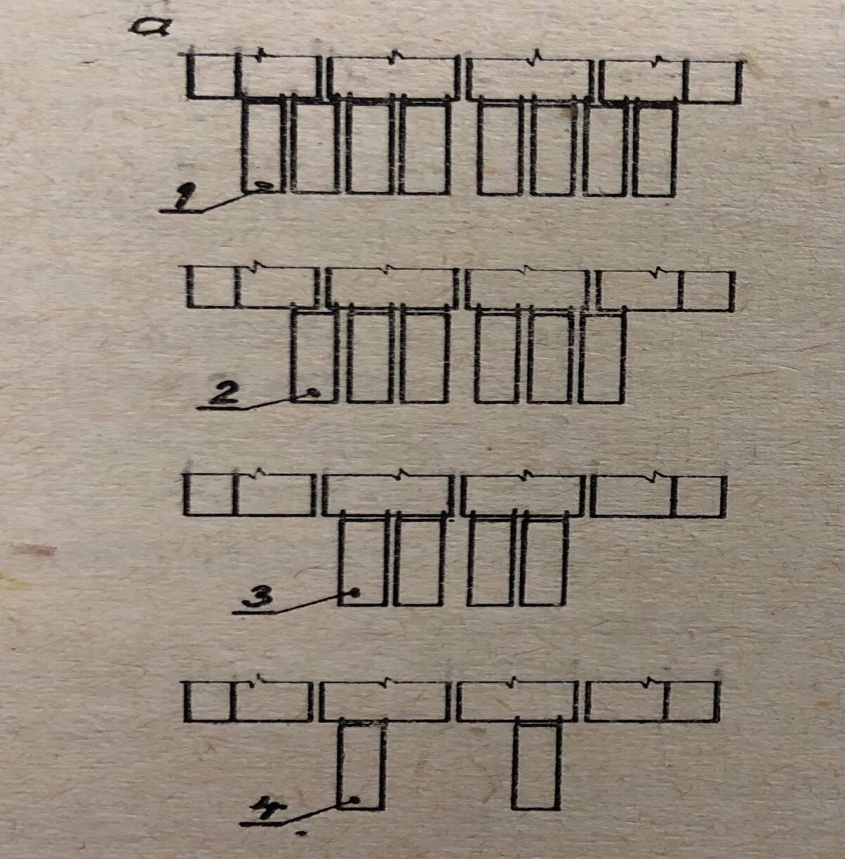 а
1
2
3
4